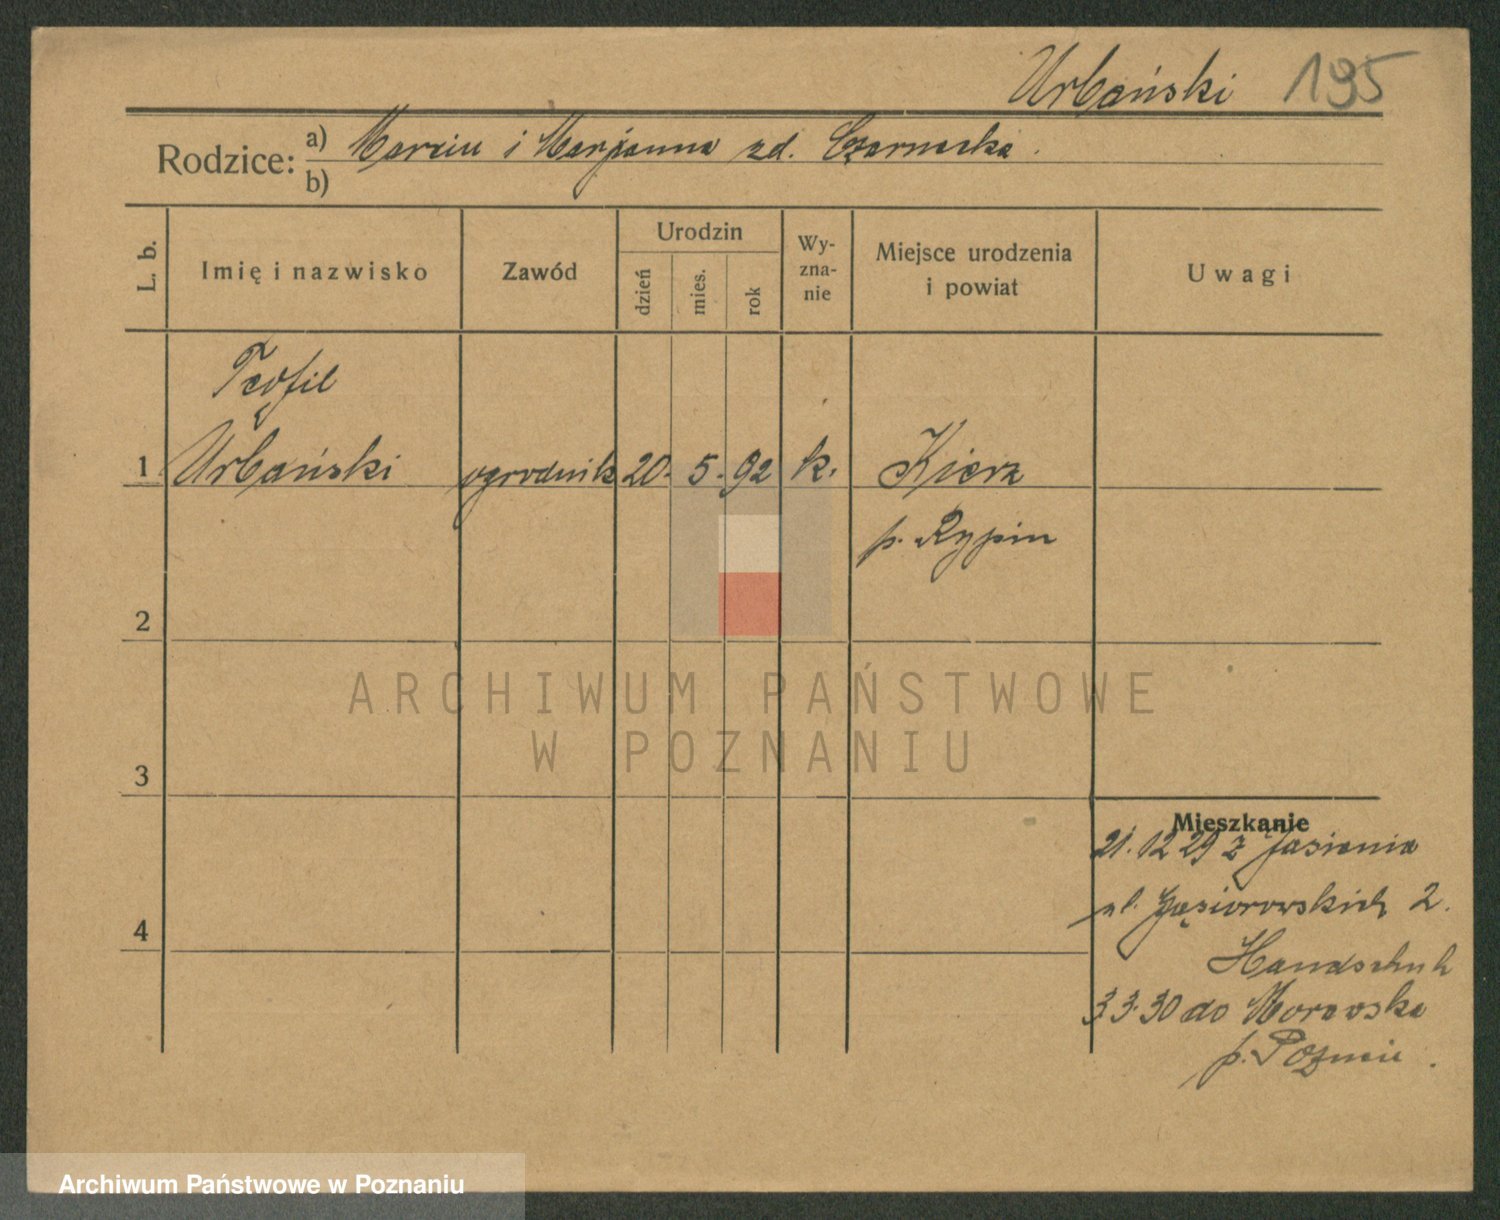 Urbański 195
Rodzice: a) Marcin i Marjanna zd. Czarnecka.
b)
L. b.
Imię i nazwisko
Zawód
Urodzin
dzień
mies.
rok
Wy-
zna-
nie
Miejsce urodzenia
i powiat
Uwagi
Teofil
1 Urbański ogrodnik 20. 5. 92 k. Kierz
p. Rypin
2
ARCHIWUM PAŃSTWOWE
W POZNANIU
3
Mieszkanie
21.12 29 z Jasienia
ul. Gąsiorowskich 2.
4
Handschuh
3.3.30 do Morawska
p.
Archiwum Państwowe w Poznaniu